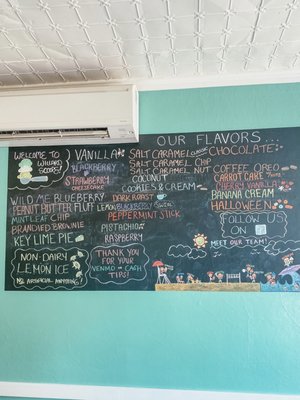 OUR FLAVORS...
WELCOME TO
WILD ME BLUEBERRY
PEANUT BUTTER FLUFF
MINT LEAF CHIP
BRANDIED BROWNIE
KEY LIME PIE
NON-DAIRY
LEMON ICE
VANILLA
BLACKBERRY
STRAWBERRY
CHEESECAKE
LEMON BLACKBERRY
PEPPERMINT STICK
PISTACHIO
RASPBERRY
THANK YOU
FOR YOUR
VENMO OR CASH
TIPS!
SALT CARAMEL
SALT CARAMEL CHIP
SALT CARAMEL NUT
COCONUT
COOKIES & CREAM
DARK ROAST
CHOCOLATE
COFFEE OREO
CARROT CAKE
CHERRY VANILLA
BANANA CREAM
HALLOWEEN
FOLLOW US
ON
MEET OUR TEAM